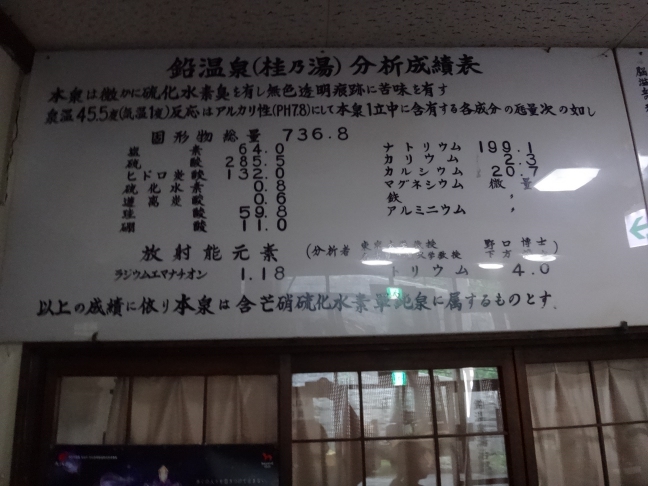 鉛温泉(桂乃湯)分析成績表
本泉は微かに硫化水素臭を有し無色透明痕跡に苦味を有す
泉温45.5度(気温1度)反応はアルカリ性(PH7.8)にして本泉1立中に含有する各成分の瓦量次の如し
固形物総量 736.8
塩素 64.0
硫酸 285.5
ヒドロ炭酸 132.0
硫化水素 0.8
遊離炭酸 0.6
珪酸 59.8
硼酸 11.0
ナトリウム 199.1
カリウム 2.3
カルシウム 20.7
マグネシウム 微量
鉄 〃
アルミニウム 〃
放射能元素
(分析者 教授 野口 博士)
ラジウムエマナチオン 1.18
トリウム 4.0
以上の成績に依り本泉は含芒硝硫化水素単純泉に属するものとす.